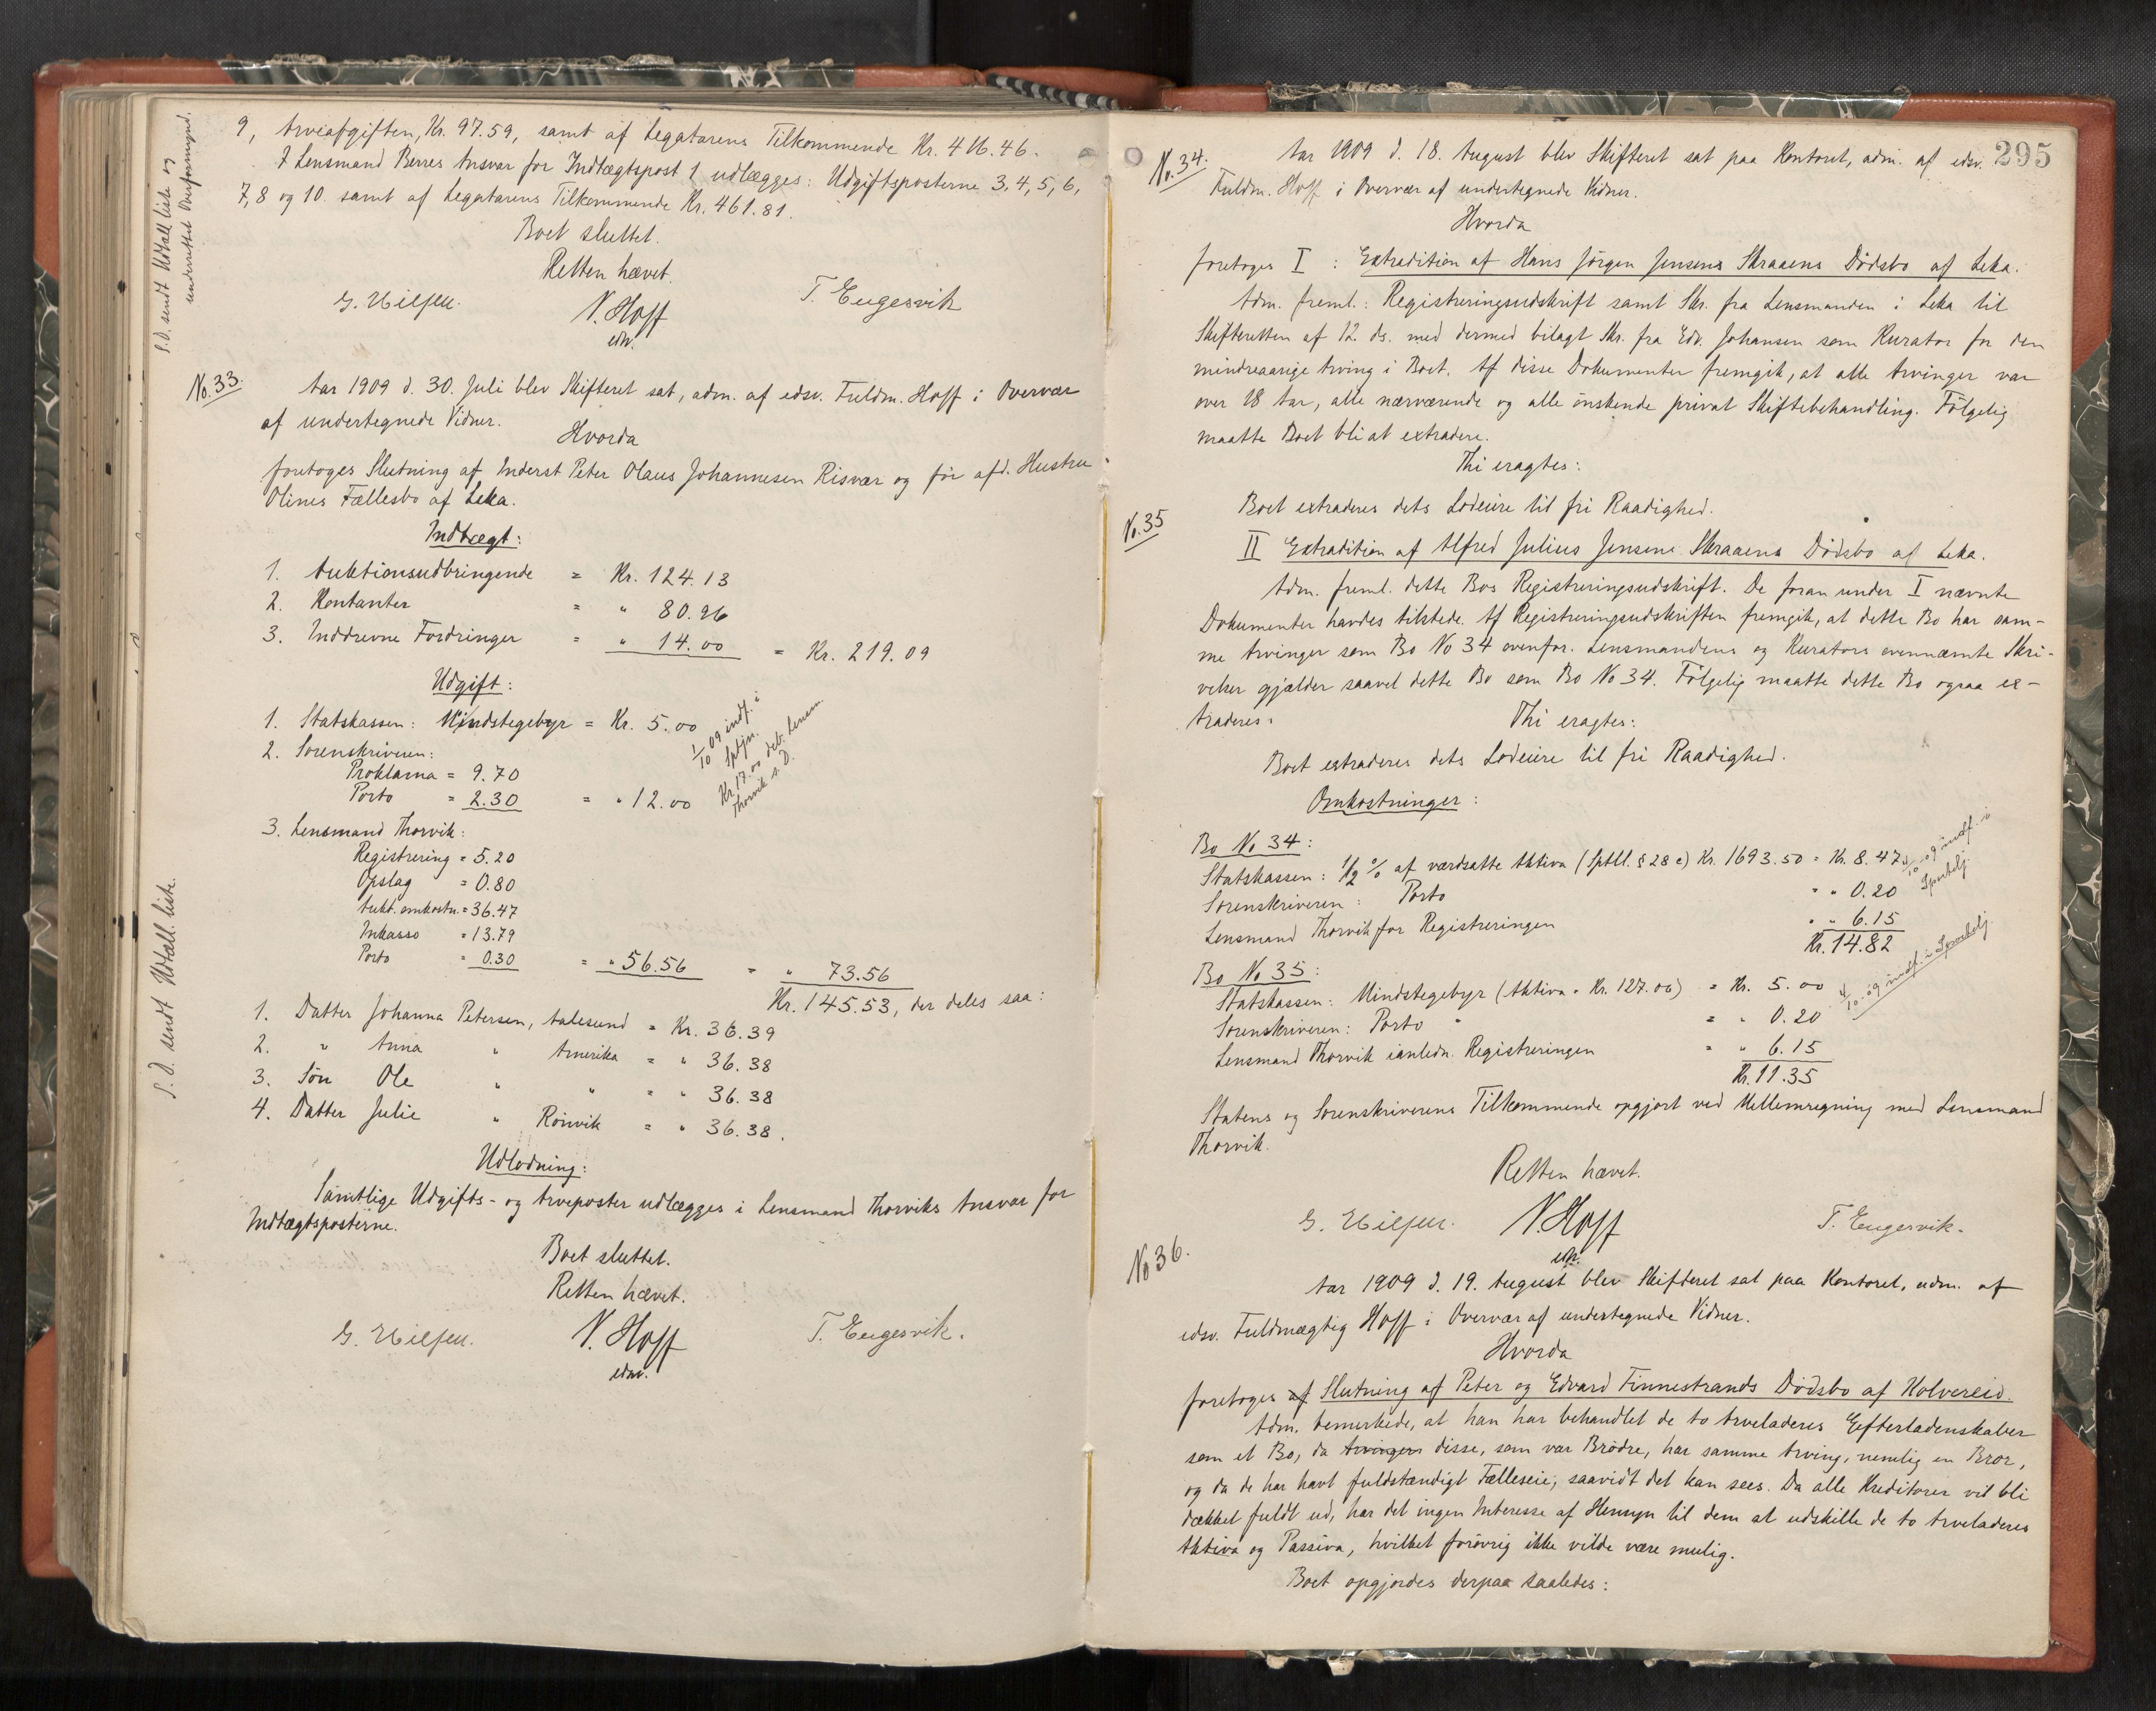 9, Arveafgiften, Kr. 97.59, samt af Legatarens Tilkommende Kr. 416.46.
I Lensmand Berres Ansvar for Indtægtspost 1 udlægges: Udgiftsposterne 3, 4, 5, 6,
7, 8 og 10. samt af Legatarens Tilkommende Kr. 461.81.
Boet sluttet.
Retten hævet.
G. Nilsen. N. Hoff T. Engesvik
edsv.
S.D. sendt Udtall. liste og
underrettet Overformynd.
No. 33.
Aar 1909 d. 30. Juli blev Skifteret sat, adm. af edsv. Fuldm. Hoff i Overvær
af undertegnede Vidner.
Hvorda
foretoges Slutning af Inderst Peter Olaus Johannesen Risvær og før afd. Hustru
Olines Fællesbo af Leka.
Indtægt:
1. Auktionsudbringende = Kr. 124.13
2. Kontanter = " 80.96
3. Inddrevne Fordringer = " 14.00 = Kr. 219.09
Udgift:
1. Statskassen: Mindstegebyr = Kr. 5.00
2. Sorenskriveren:
Proklama = 9.70
Porto = 2.30 = " 12.00
1/10 09 indf. i
Sptjn.
Kr. 17.00 deb. Lensm.
Thorvik s. D.
3. Lensmand Thorvik:
Registrering = 5.20
Opslag = 0.80
Aukt. omkostn. = 36.47
Inkasso = 13.79
Porto = 0.30 = " 56.56 = " 73.56
Kr. 145.53, der deles saa:
1. Datter Johanna Petersen, Aalesund = Kr. 36.39
2. " Anna " Amerika = " 36.38
3. Søn Ole " " = " 36.38
4. Datter Julie " Rörvik = " 36.38.
S.D. sendt Udtall. liste.
Udlodning:
Samtlige Udgifts- og Arveposter udlægges i Lensmand Thorviks Ansvar for
Indtægtsposterne.
Boet sluttet.
Retten hævet.
G. Nilsen. N. Hoff T. Engesvik.
edsv.
295
No. 34.
Aar 1909 d. 18. August blev Skifteret sat paa Kontoret, adm. af edsv.
Fuldm. Hoff i Overvær af undertegnede Vidner.
Hvorda
foretoges I : Extradition af Hans Jörgen Jensens Skraaens Dödsbo af Leka.
Adm. freml.: Registreringsudskrift samt Skr. fra Lensmanden i Leka til
Skifteretten af 12. ds. med dermed bilagt Skr. fra Edv. Johansen som Kurator for den
mindreaarige Arving i Boet. Af disse Dokumenter fremgik, at alle Arvinger var
over 18 Aar, alle nærværende og alle önskende privat Skiftebehandling. Fölgelig
maatte Boet bli at extradere.
Thi eragtes:
Boet extraderes dets Lodeiere til fri Raadighed.
No. 35
II Extradition af Alfred Julius Jensens Skraaens Dödsbo af Leka.
Adm. freml. dette Bos Registreringsudskrift. De foran under I nævnte
Dokumenter havdes tilstede. Af Registreringsudskriften fremgik, at dette Bo har sam-
me Arvinger som Bo No 34 ovenfor. Lensmandens og Kurators ovennævnte Skri-
velser gjælder saavel dette Bo som Bo No 34. Fölgelig maatte dette Bo ogsaa ex-
traderes.
Thi eragtes:
Boet extraderes dets Lodeiere til fri Raadighed.
Omkostninger:
Bo No 34:
Statskassen: 1/2 % af værdsatte Aktiva (Sptll. § 28 c) Kr. 1693.50 = Kr. 8.47
Sorenskriveren: Porto = " 0.20
Lensmand Thorvik for Registreringen = " 6.15
Kr. 14.82
Bo No 35:
Statskassen: Mindstegebyr (Aktiva = Kr. 127.00) = Kr. 5.00
Sorenskriveren: Porto = " 0.20
Lensmand Thorvik ianledn. Registreringen = " 6.15
Kr. 11.35
Statens og Sorenskriverens Tilkommende opgjort ved Mellemregning med Lensmand
Thorvik.
Retten hævet.
G. Nilsen. N. Hoff T. Engesvik.
edsv.
No 36.
Aar 1909 d. 19. August blev Skifteret sat paa Kontoret, adm. af
edsv. Fuldmægtig Hoff i Overvær af undertegnede Vidner.
Hvorda
foretoges af Slutning af Peter og Edvard Finnestrands Dödsbo af Kolvereid.
Adm. bemerkede, at han har behandlet de to Arveladeres Efterladenskaber
som et Bo, da Arvingen disse, som var Brödre, har samme Arving, nemlig en Bror,
og da de har havt fuldstændigt Fælleseie, saavidt det kan sees. Da alle Kreditorer vil bli
dækket fuldt ud, har det ingen Interesse af Hensyn til dem at udskille de to Arveladeres
Aktiva og Passiva, hvilket forövrig ikke vilde være mulig.
Boet opgjordes derpaa saaledes: